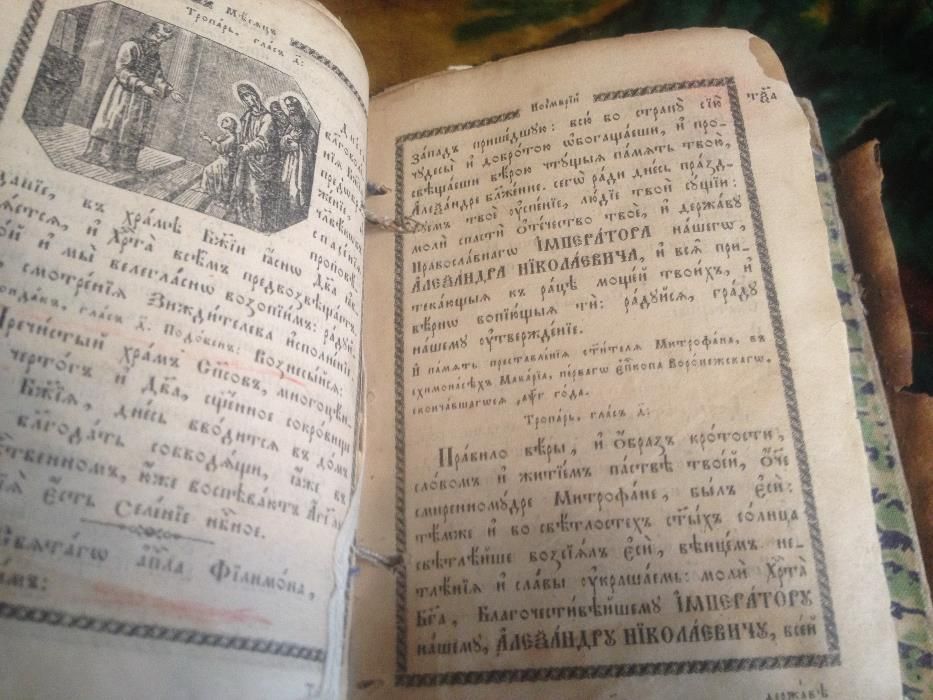 Мѣсяцъ
Тропа́рь, гла́съ д҃:
Дне́сь
благовол
нїѧ Бж
предѡбр
же́нїе:
человѣкѡмъ
спасе́нїѧ
да́нїе, въ хра́мѣ Бж҃їи ꙗ҆́снѡ Дв҃а ꙗ҆в
лѧ́етсѧ, и҆ Хрⷭ҇та̀ всѣ̑мъ предвозвѣща́етъ.
то́й и҆ мы̀ велегла́снѡ возопїи́мъ: ра́дуйсѧ
смотре́нїѧ Зижди́телева и҆сполне́нїе.
Конда́къ, гла́съ д҃: Подо́бенъ: Вознесы́йсѧ:
Пречи́стый хра́мъ Сп҃совъ, многоцѣ́н
черто́гъ и҆ Дв҃а, сщ҃е́нное сокро́вище
Бж҃їѧ, дне́сь вво́дитсѧ въ до́мъ
благода́ть совводѧ́щи, ꙗ҆́же въ
ственномъ, ю҆́же воспѣва́ютъ А҆́гг҃ли
Сїѧ̀ є҆́сть Селе́нїе нбⷭ҇ное.
Свѧта́гѡ а҆пⷭ҇ла Фїлимо́на,
Ное́мврїй
за́падъ прише́дшую: всю̀ бо странꙋ̀ сїю̀
чꙋдесы̀ и҆ добро́тою ѡ҆богаща́еши, и҆ про-
свѣща́еши вѣ́рою чтꙋ́щыѧ па́мѧть твою̀,
А҆леѯа́ндре бл҃же́нне. сегѡ̀ ра́ди дне́сь пра́зд-
нꙋемъ твоѐ ᲂу҆спе́нїе, лю́дїе твоѝ сꙋ́щїи:
молѝ спастѝ ѻ҆те́чество твоѐ, и҆ держа́вꙋ
Правосла́внагѡ І҆МПЕРА́ТОРА на́шегѡ,
А҆ЛЕѮА́НДРА НІКОЛА́ЕВИЧА, и҆ всѧ̑ при-
тека́ющыѧ къ ра́цѣ моще́й твои́хъ, и҆
вѣ́рнѡ вопїю́щыѧ тѝ: ра́дꙋйсѧ, гра́дꙋ
на́шемꙋ ᲂу҆твержде́нїе.
И҆ па́мѧть преставле́нїѧ ст҃и́телѧ Митрофа́на, въ
схимона́сѣхъ Мака́рїа, пе́рвагѡ є҆пⷭ҇копа Воро́нежскагѡ,
сконча́вшагѡсѧ ҂аѱг го́да.
Тропа́рь, гла́съ д҃:
Пра́вило вѣ́ры, и҆ ѻ҆́бразъ кро́тости,
сло́вомъ и҆ житїе́мъ па́ствѣ твое́й, ѻ҆́ч҃е
смиренномꙋ́дре Митрофа́не, бы́лъ є҆сѝ:
тѣ́мже и҆ во свѣ́тлостехъ ст҃ы́хъ со́лнца
свѣтлѣ́йше возсїѧ́лъ є҆сѝ, вѣнце́мъ не-
тлѣ́нїѧ и҆ сла́вы ᲂу҆краша́емь: молѝ Хрⷭ҇та̀
Бг҃а, Благочести́вѣйшемꙋ І҆МПЕРА́ТОРꙋ
на́шемꙋ, А҆ЛЕѮА́НДРꙋ НІКОЛА́ЕВИЧꙋ, все́й
держа́вѣ